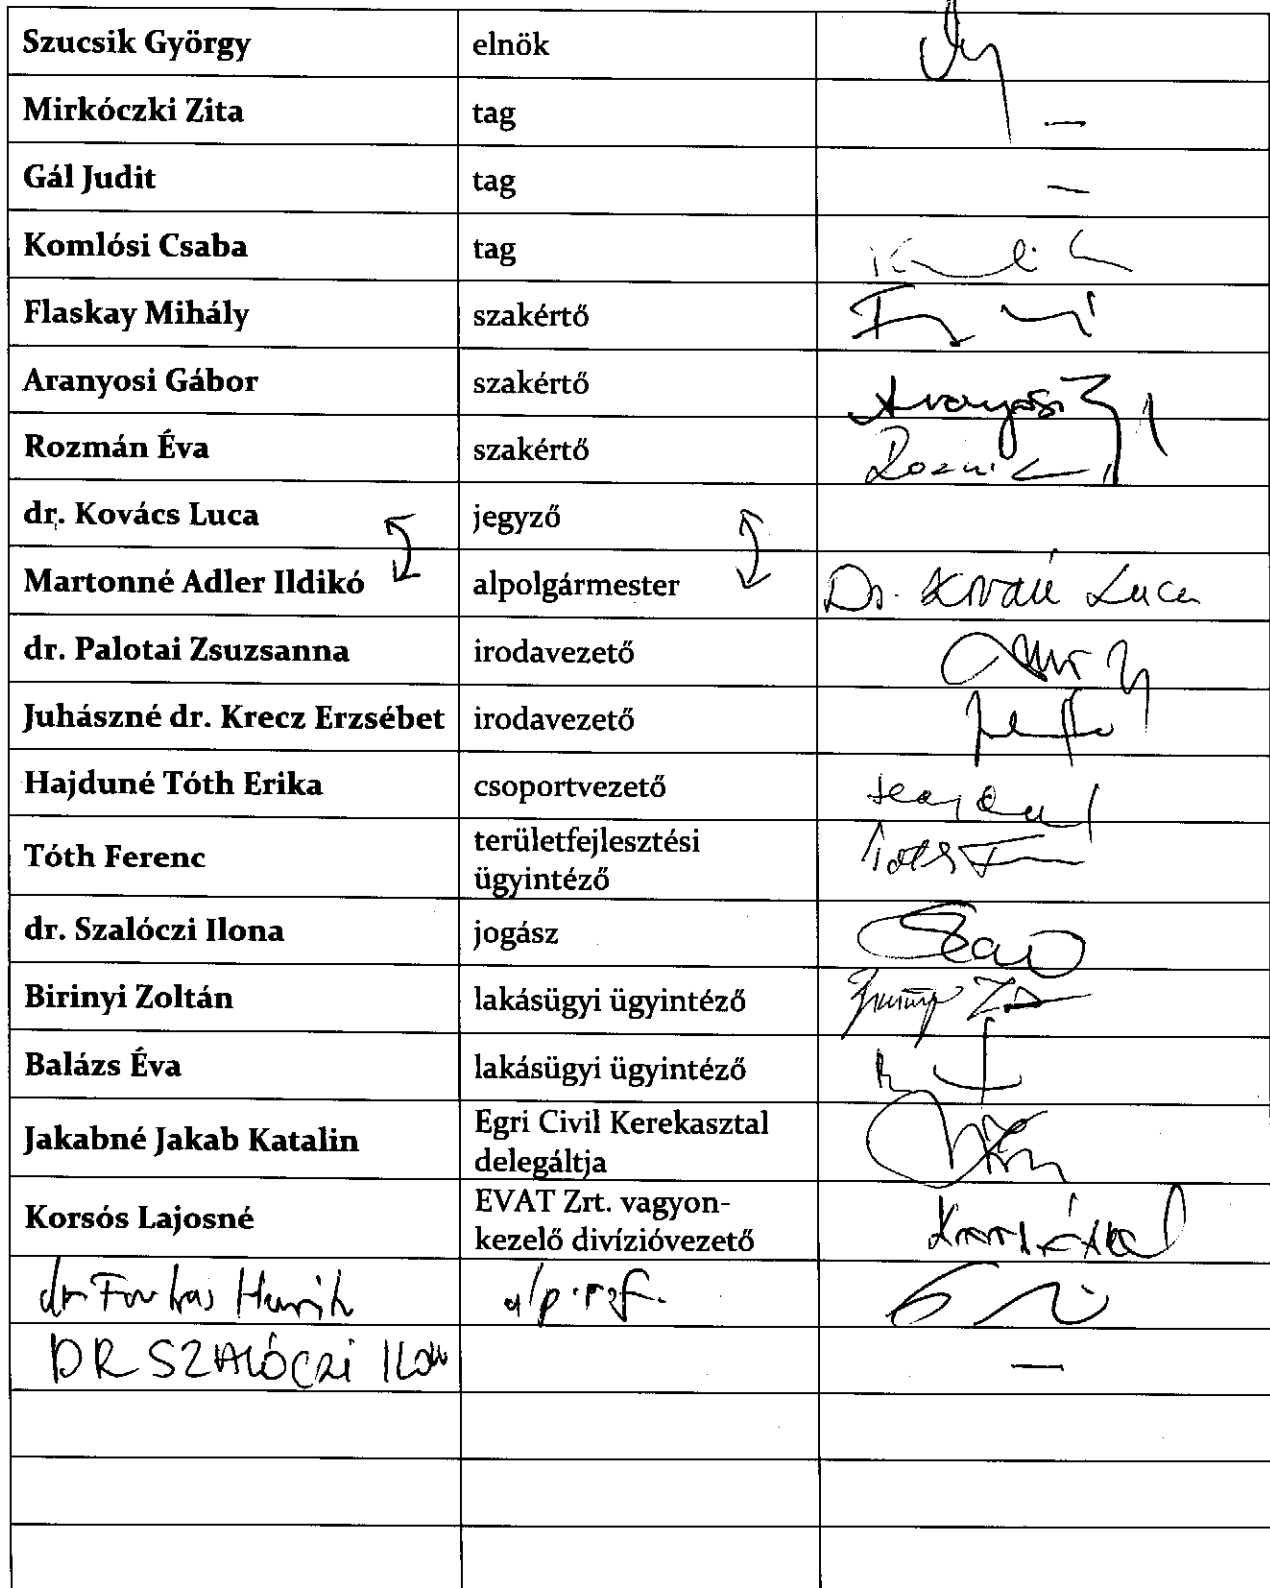 Szucsik György elnök
Mirkóczki Zita tag —
Gál Judit tag —
Komlósi Csaba tag
Flaskay Mihály szakértő
Aranyosi Gábor szakértő Aranyosi
Rozmán Éva szakértő
dr. Kovács Luca jegyző
Martonné Adler Ildikó alpolgármester Dr. Kovács Luca
dr. Palotai Zsuzsanna irodavezető
Juhászné dr. Krecz Erzsébet irodavezető
Hajduné Tóth Erika csoportvezető
Tóth Ferenc területfejlesztési
ügyintéző
dr. Szalóczi Ilona jogász
Birinyi Zoltán lakásügyi ügyintéző
Balázs Éva lakásügyi ügyintéző
Jakabné Jakab Katalin Egri Civil Kerekasztal
delegáltja
Korsós Lajosné EVAT Zrt. vagyon-
kezelő divízióvezető
dr
DR SZALÓCZI Ilona —